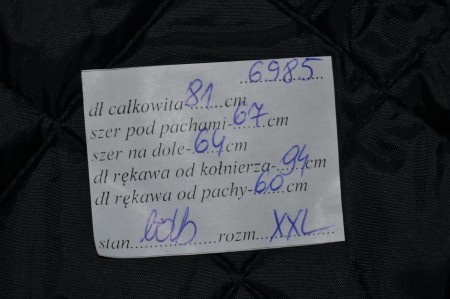 6985
dł całkowita-81cm
szer pod pachami-67cm
szer na dole-64cm
dł rękawa od kołnierza-94cm
dł rękawa od pachy-60cm
stan bdb rozm XXL